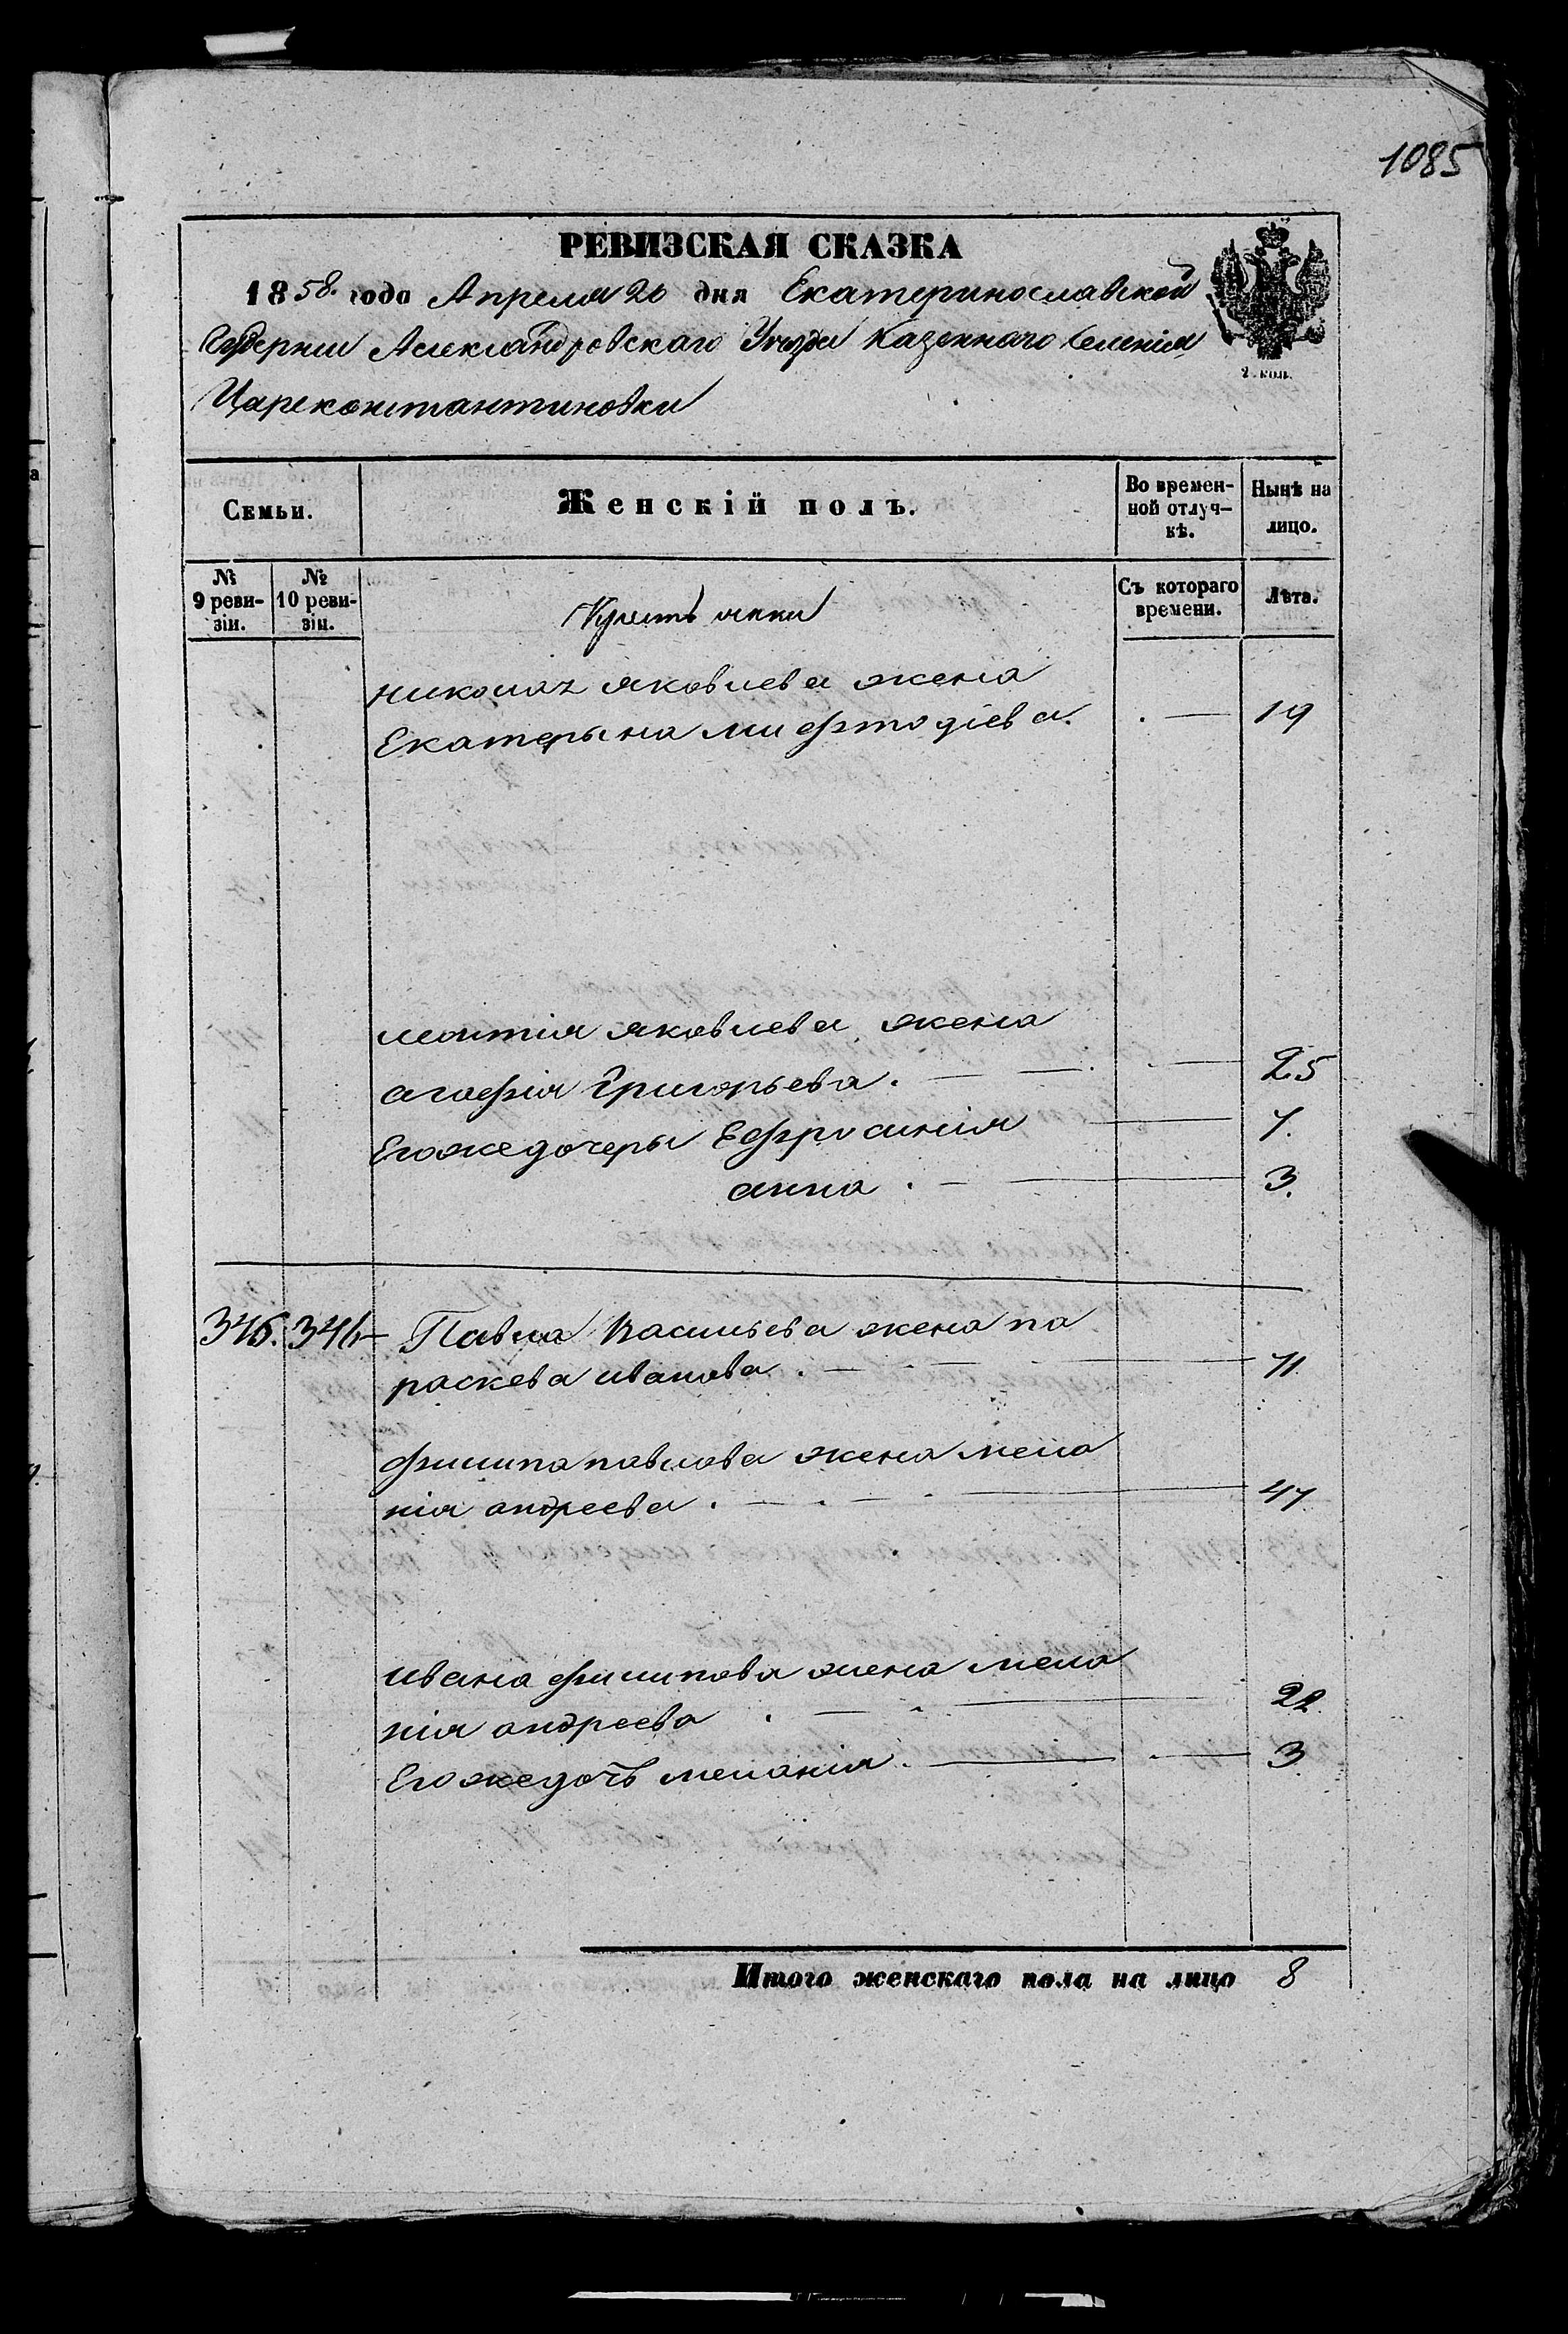 1085
РЕВИЗСКАЯ СКАЗКА
1858. года Апреля 20 дня Екатеринославской
Губернии Александровскаго Уезда Казеннаго селенія
Цареконстантиновки
2 коп.
Семьи.
Женскій полъ.
Во времен-
ной отлуч-
кѣ.
Нынѣ на
лицо.
№
9 реви-
зіи.
№
10 реви-
зіи.
Съ котораго
времени.
Лѣта.
николая яковлева жена
Екатерына мифтодіева. — 19
леонтія яковлева жена
агафія Григорьева. — 25
Егожедочеры Ефросинія — 7.
анна. — 3.
346. Павла Васильева жена па
раскева иванова. — 71
филипа павлова жена мела
нія андреева. — 47
ивана филипова жена мела
нія андреева. — 22
Егожедочь меланія. — 3
Итого женскаго пола на лицо 8